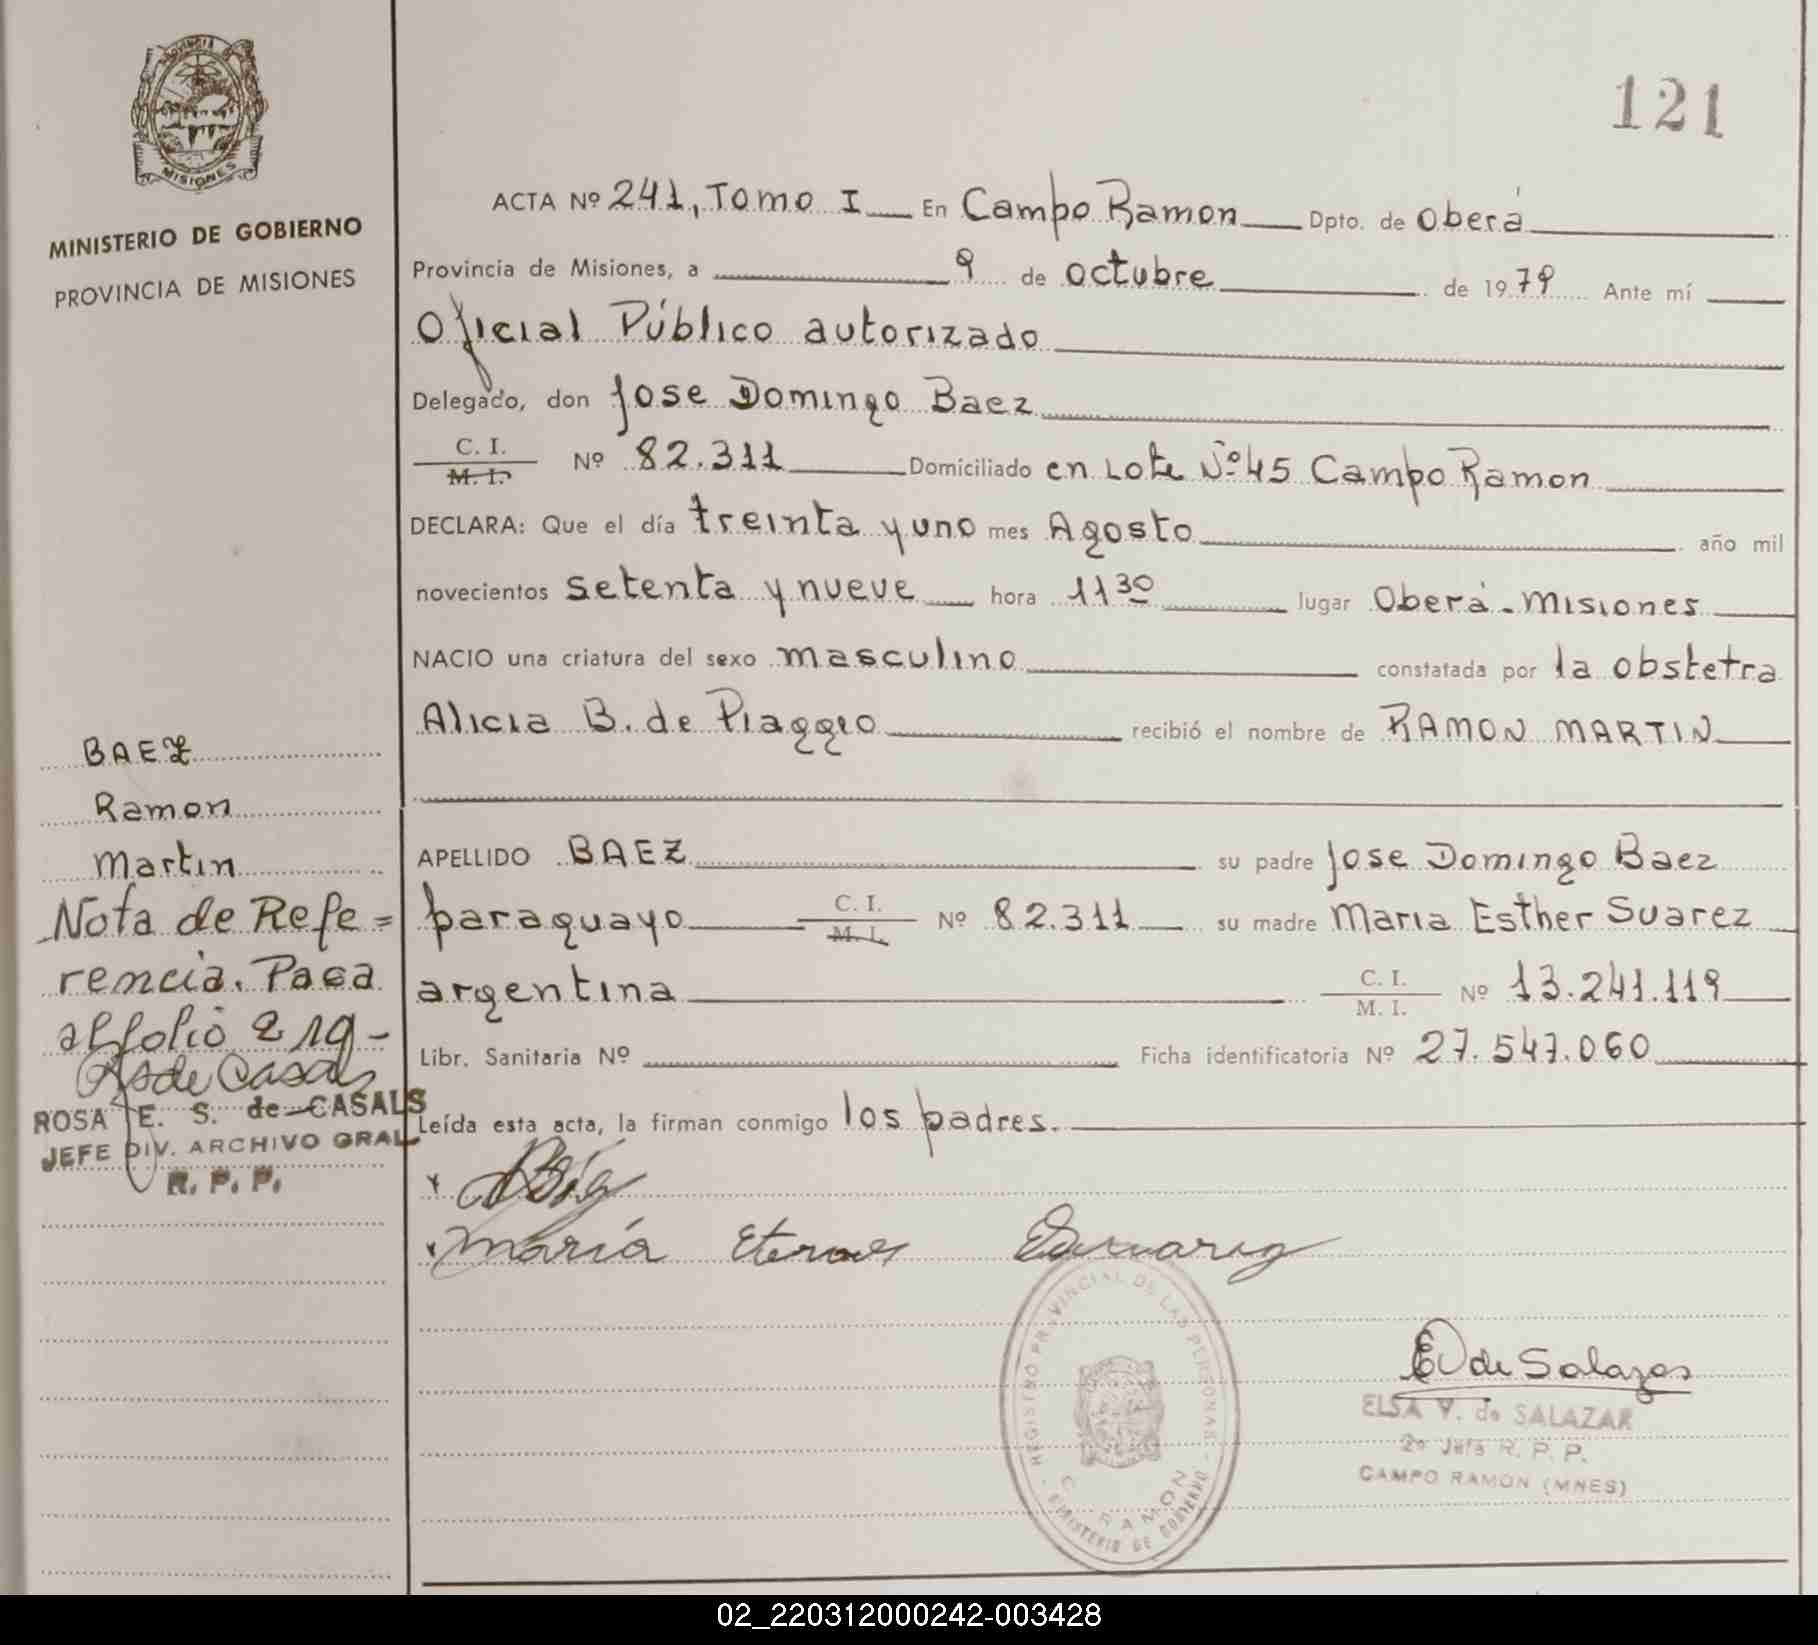 PROVINCIA
MISIONES
MINISTERIO DE GOBIERNO
PROVINCIA DE MISIONES
121
ACTA Nº 241, Tomo I En Campo Ramon Dpto. de Oberá
Provincia de Misiones, a 9 de octubre de 1979 Ante mí
Oficial Público autorizado
Delegado, don Jose Domingo Baez
C. I.
M. I. Nº 82.311 Domiciliado en Lote Nº 45 Campo Ramon
DECLARA: Que el día treinta y uno mes Agosto año mil
novecientos setenta y nueve hora 11 30 lugar Oberá - Misiones
NACIO una criatura del sexo masculino constatada por la obstetra
Alicia B. de Piaggio recibió el nombre de RAMON MARTIN
BAEZ
Ramon
Martin
Nota de Refe=
rencia. Pasa
al folio 219-
ROSA E. S. de CASALS
JEFE DIV. ARCHIVO GRAL
R. P. P.
APELLIDO BAEZ su padre Jose Domingo Baez
paraguayo C. I. M. I. Nº 82.311 su madre Maria Esther Suarez
argentina C. I. M. I. Nº 13.241.119
Libr. Sanitaria Nº Ficha identificatoria Nº 27.547.060
Leída esta acta, la firman conmigo los padres.
María
E V de Salazar
ELSA V. de SALAZAR
2º Jefa R. P. P.
CAMPO RAMON (MNES)
REGISTRO PROVINCIAL DE LAS PERSONAS
C. RAMON
MINISTERIO DE GOBIERNO
02_220312000242-003428